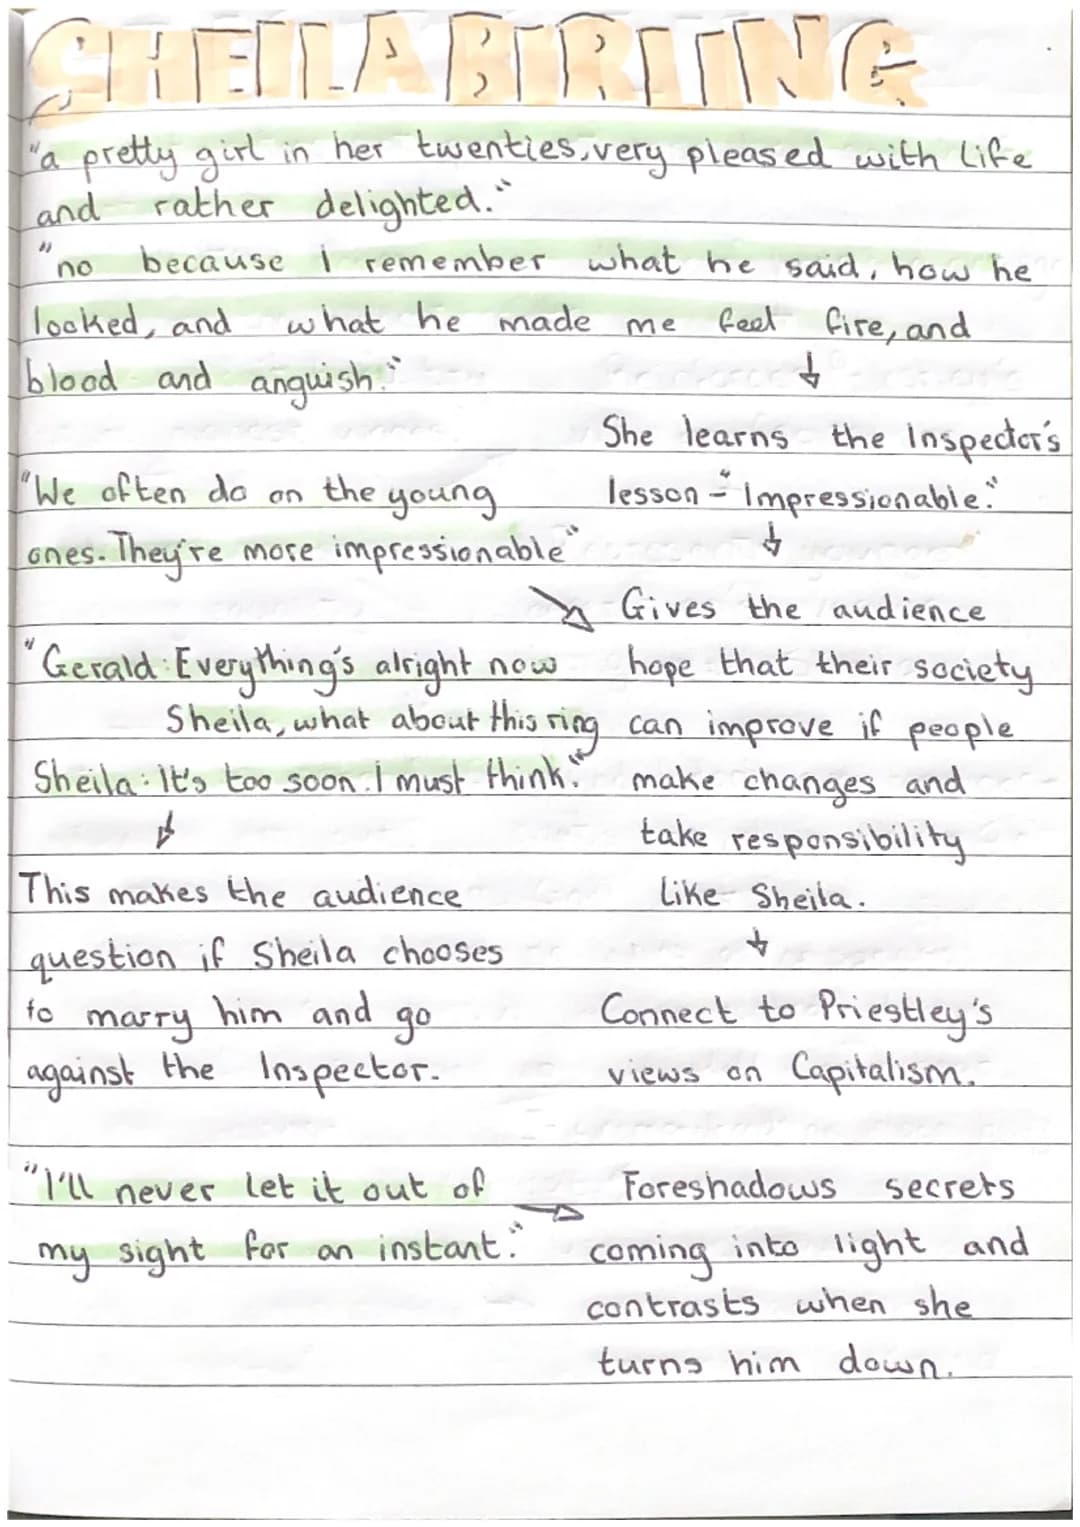 SHEILA BIRLING
"a pretty girl in her twenties, very pleased with life
and rather delighted."
"no because I remember what he said, how he
looked, and what he made me feel fire, and
blood and anguish."
She learns the Inspector's
lesson - "Impressionable."
"We often do on the young
ones. They're more impressionable"
Gives the audience
hope that their society
can improve if people
make changes and
take responsibility
like Sheila.
Connect to Priestley's
views on Capitalism.
"Gerald: Everything's alright now
Sheila, what about this ring
Sheila: It's too soon. I must think."
This makes the audience
question if Sheila chooses
to marry him and go
against the Inspector.
"I'll never let it out of
my sight for an instant."
Foreshadows secrets
coming into light and
contrasts when she
turns him down.